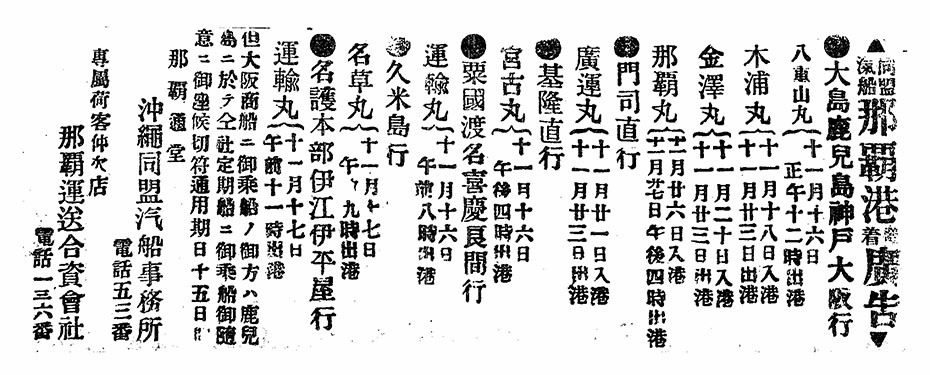 ▲同盟汽船那覇港發着廣告▼
●大島鹿兒島神戸大阪行
八重山丸 十一月十六日
正午十二時出港
木浦丸 十一月十八日入港
十一月廿三日出港
金澤丸 十一月二十日入港
十一月廿三日出港
那覇丸 十一月廿六日入港
十一月廿七日午後四時出港
●門司直行
廣運丸 十一月廿一日入港
十一月廿三日出港
●基隆直行
宮古丸 十一月十六日
午後四時出港
●粟國渡名喜慶良間行
運輸丸 十一月十六日
午前八時出港
●久米島行
名草丸 十一月十七日
午九時出港
●名護本部伊江伊平屋行
運輸丸 十一月十七日
午前十一時出港
但大阪商船ニ御乗船ノ御方ハ鹿兒
島ニ於テ仝社定期船ニ御乗船御隨
意ニ御座候切符通用期日十五日間
那覇通堂
沖繩同盟汽船事務所
電話五三番
專屬荷客仲次店
那覇運送合資會社
電話一三六番